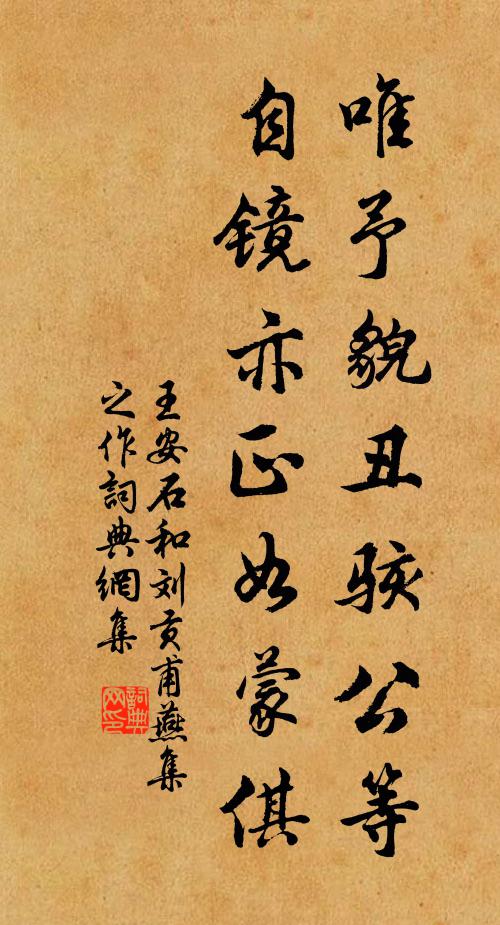 唯予貌丑骇公等
自镜亦正如蒙倛
王安石和刘贡甫燕集
之作詞典網集
詞典
网印